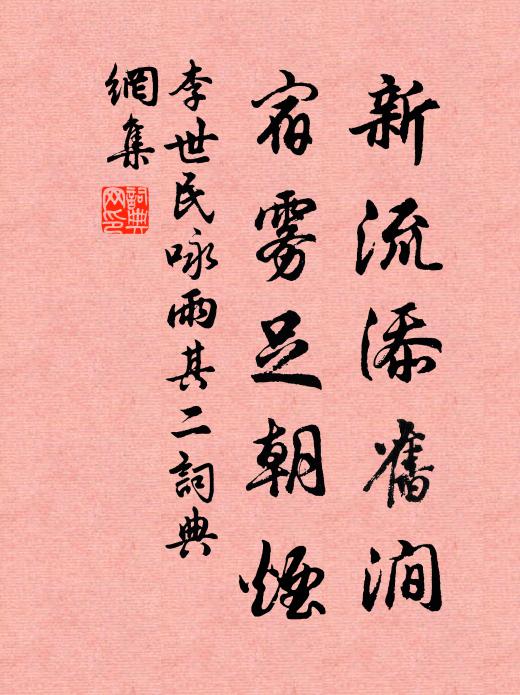 新流添舊澗
宿雾足朝煙
李世民咏雨其二詞典
網集
詞典
网印